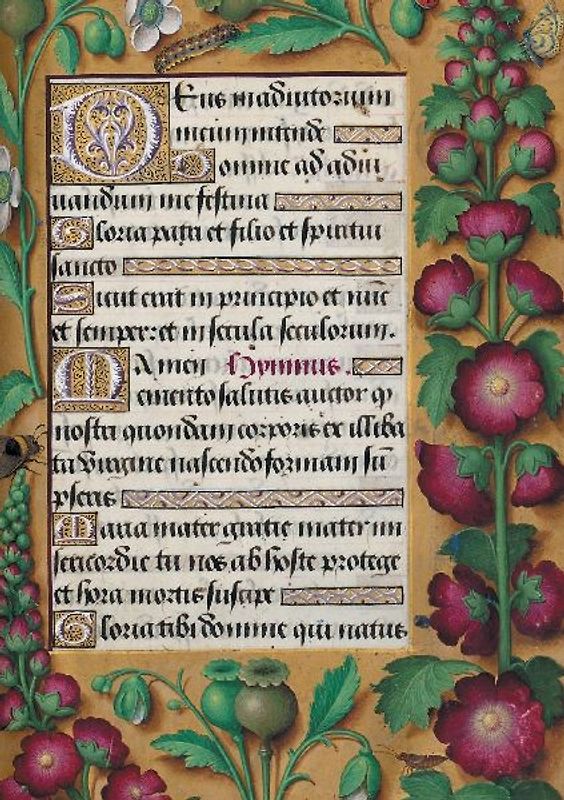 Deus in adiutorium
meum intende
Domine ad adiu
uandum me festina
Gloria patri et filio et spiritui
sancto
Sicut erat in principio et nūc
et semper: et in secula seculorum.
Amen Hymnus.
Memento salutis auctor q̄
nostri quondam corporis ex illiba
ta virgine nascendo formam sū
pseris
Maria mater gratie mater mi
sericordie tu nos ab hoste protege
et hora mortis suscipe
Gloria tibi domine qui natus